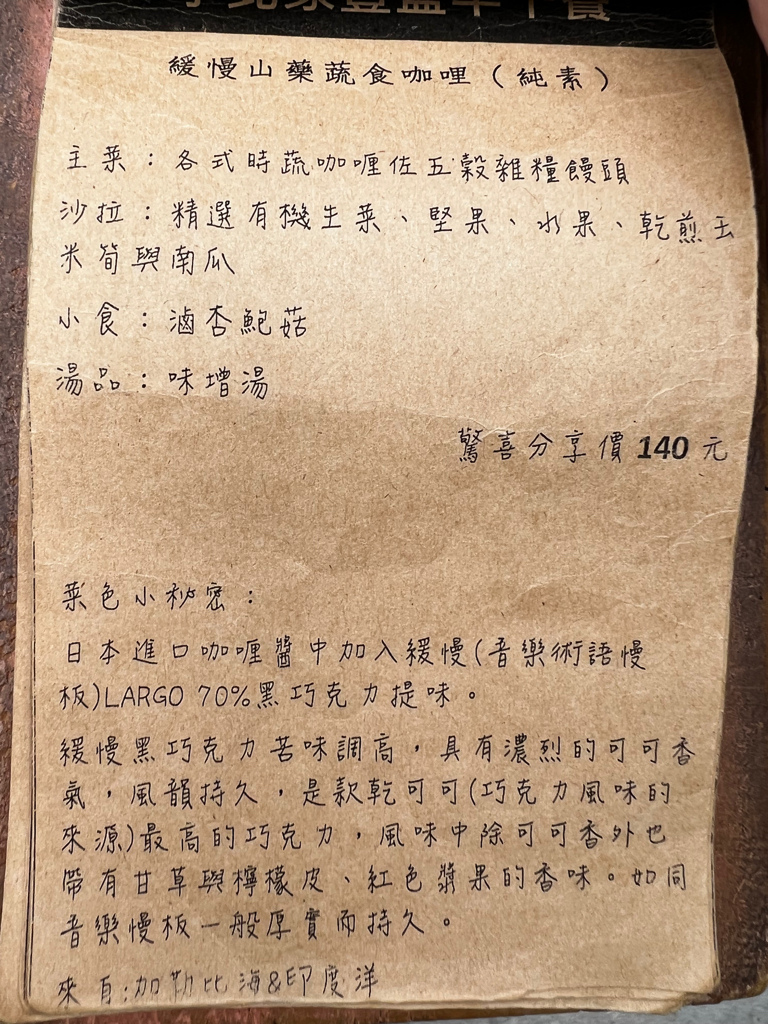 緩慢山藥蔬食咖哩（純素）
主菜：各式時蔬咖喱佐五穀雜糧饅頭
沙拉：精選有機生菜、堅果、水果、乾煎玉
米筍與南瓜
小食：滷杏鮑菇
湯品：味增湯
驚喜分享價 140 元
菜色小秘密：
日本進口咖喱醬中加入緩慢(音樂術語慢
板)LARGO 70%黑巧克力提味。
緩慢黑巧克力苦味調高，具有濃烈的可可香
氣，風韻持久，是款乾可可(巧克力風味的
來源)最高的巧克力，風味中除可可香外也
帶有甘草與檸檬皮、紅色漿果的香味。如同
音樂慢板一般厚實而持久。
來自:加勒比海&印度洋